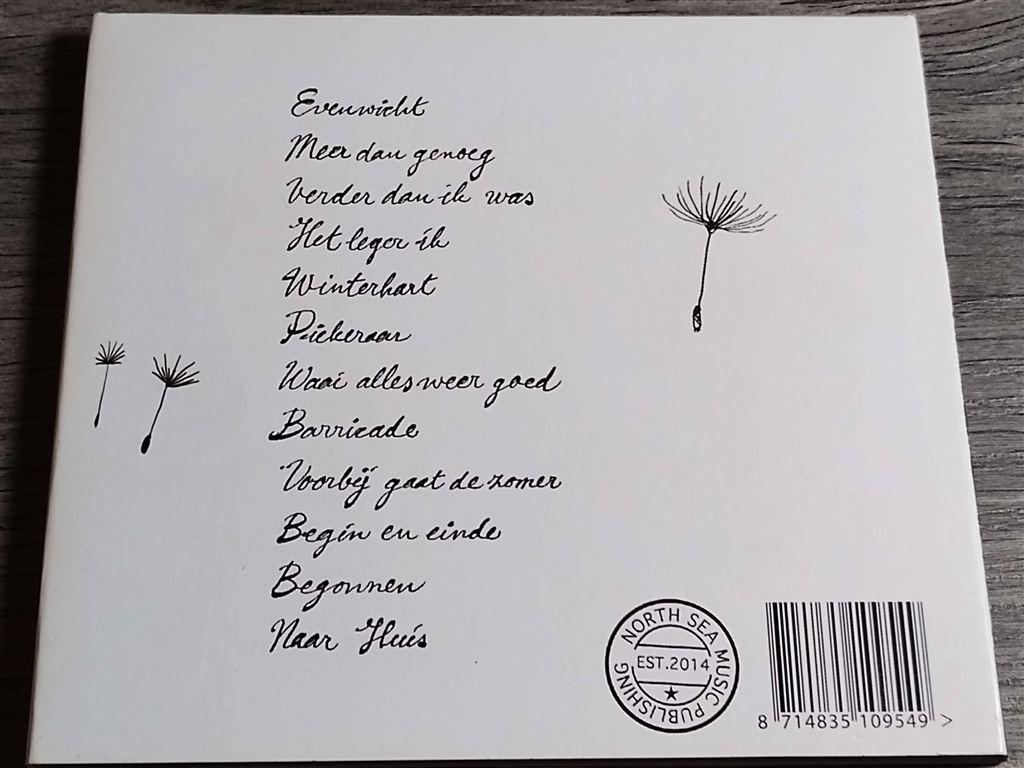 Evenwicht
Meer dan genoeg
Verder dan ik was
Het leger ik
Winterhart
Piekeraar
Waai alles weer goed
Barricade
Voorbij gaat de zomer
Begin en einde
Begonnen
Naar Huis
NORTH SEA MUSIC PUBLISHING
EST.2014
8 714835 109549 >